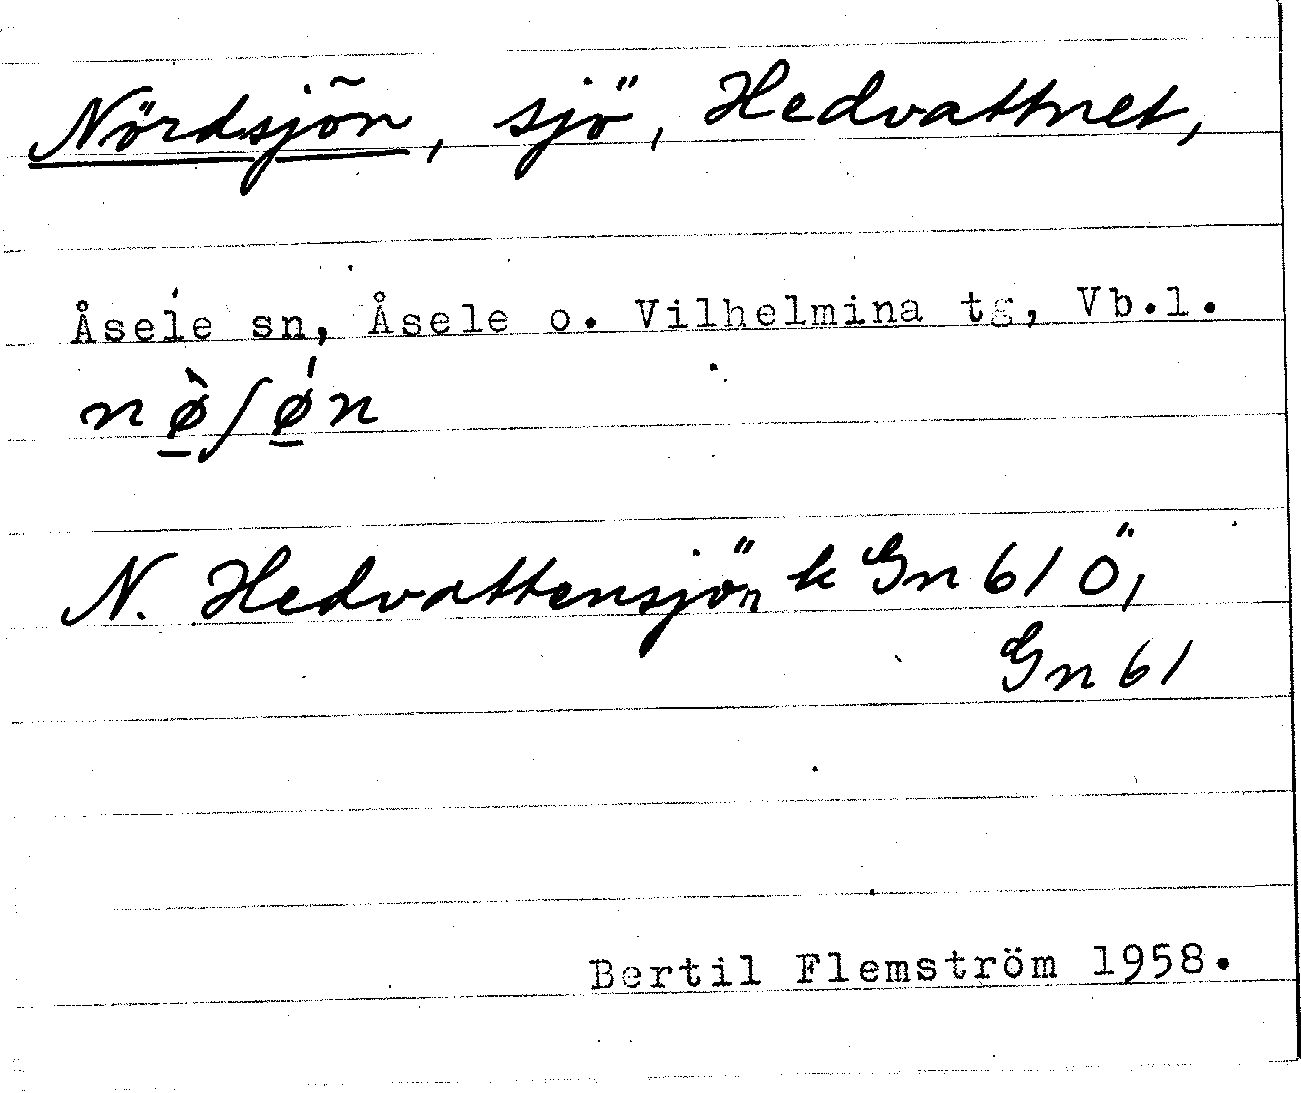 Nördsjön, sjö, Hedvattnet,
Åsele sn, Åsele o. Vilhelmina tg, Vb.l.
nø̠̀ʃǿ̠n
N. Hedvattensjön k Gn 61 ö,
Gn 61
Bertil Flemström 1958.